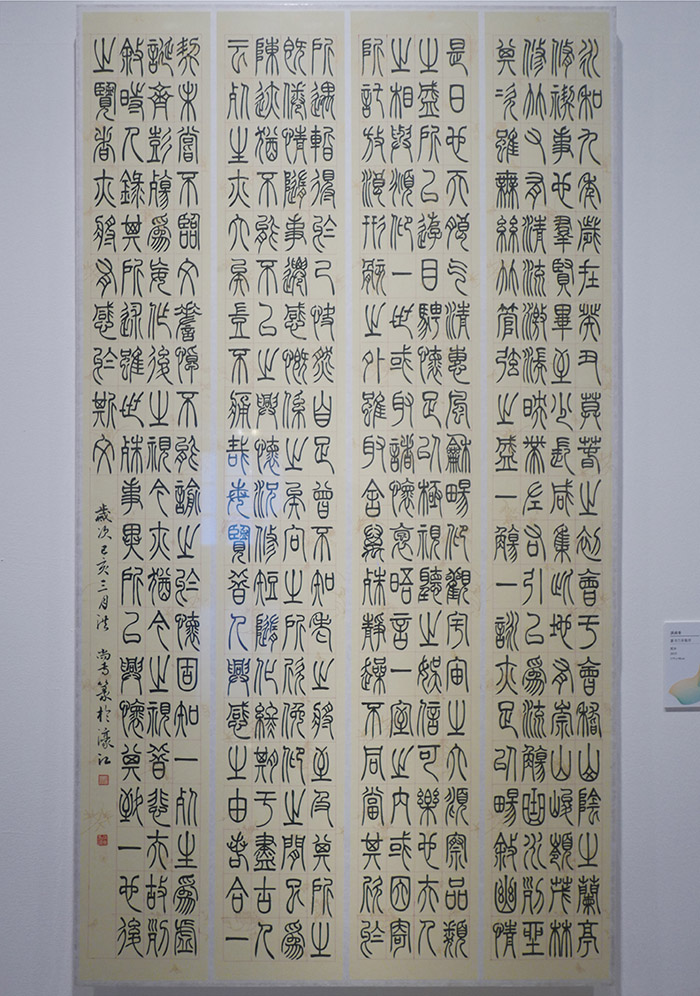 永和九年歲在癸丑莫萅之初會于會稽山陰之蘭亭
脩禊事也羣賢畢至少長咸集此地有崇山峻嶺茂林
脩竹又有清流激湍映帶左右引以為流觴曲水列坐
其次雖無絲竹管弦之盛一觴一詠亦足以暢敘幽情
是日也天朗气清惠風龢暢仰觀宇宙之大俯察品類
之盛所以遊目騁懷足以極視聽之娛信可樂也夫人
之相與俯仰一世或取諸懷抱晤言一室之內或因寄
所託放浪形骸之外雖取舍萬殊靜躁不同當其欣於
所遇暫得於己快然自足曾不知老之將至及其所之
既倦情隨事遷感慨係之矣向之所欣俛仰之閒以為
陳迹猶不能不以之興懷況脩短隨化終期于盡古人
云死生亦大矣豈不痛哉每覽昔人興感之由若合一
契未嘗不臨文嗟悼不能喻之於懷固知一死生為虛
誕齊彭殤為妄作後之視今亦猶今之視昔悲夫故列
敘時人錄其所述雖世殊事異所以興懷其致一也後
之覽者亦將有感於斯文
歲次己亥三月 篆於濠江